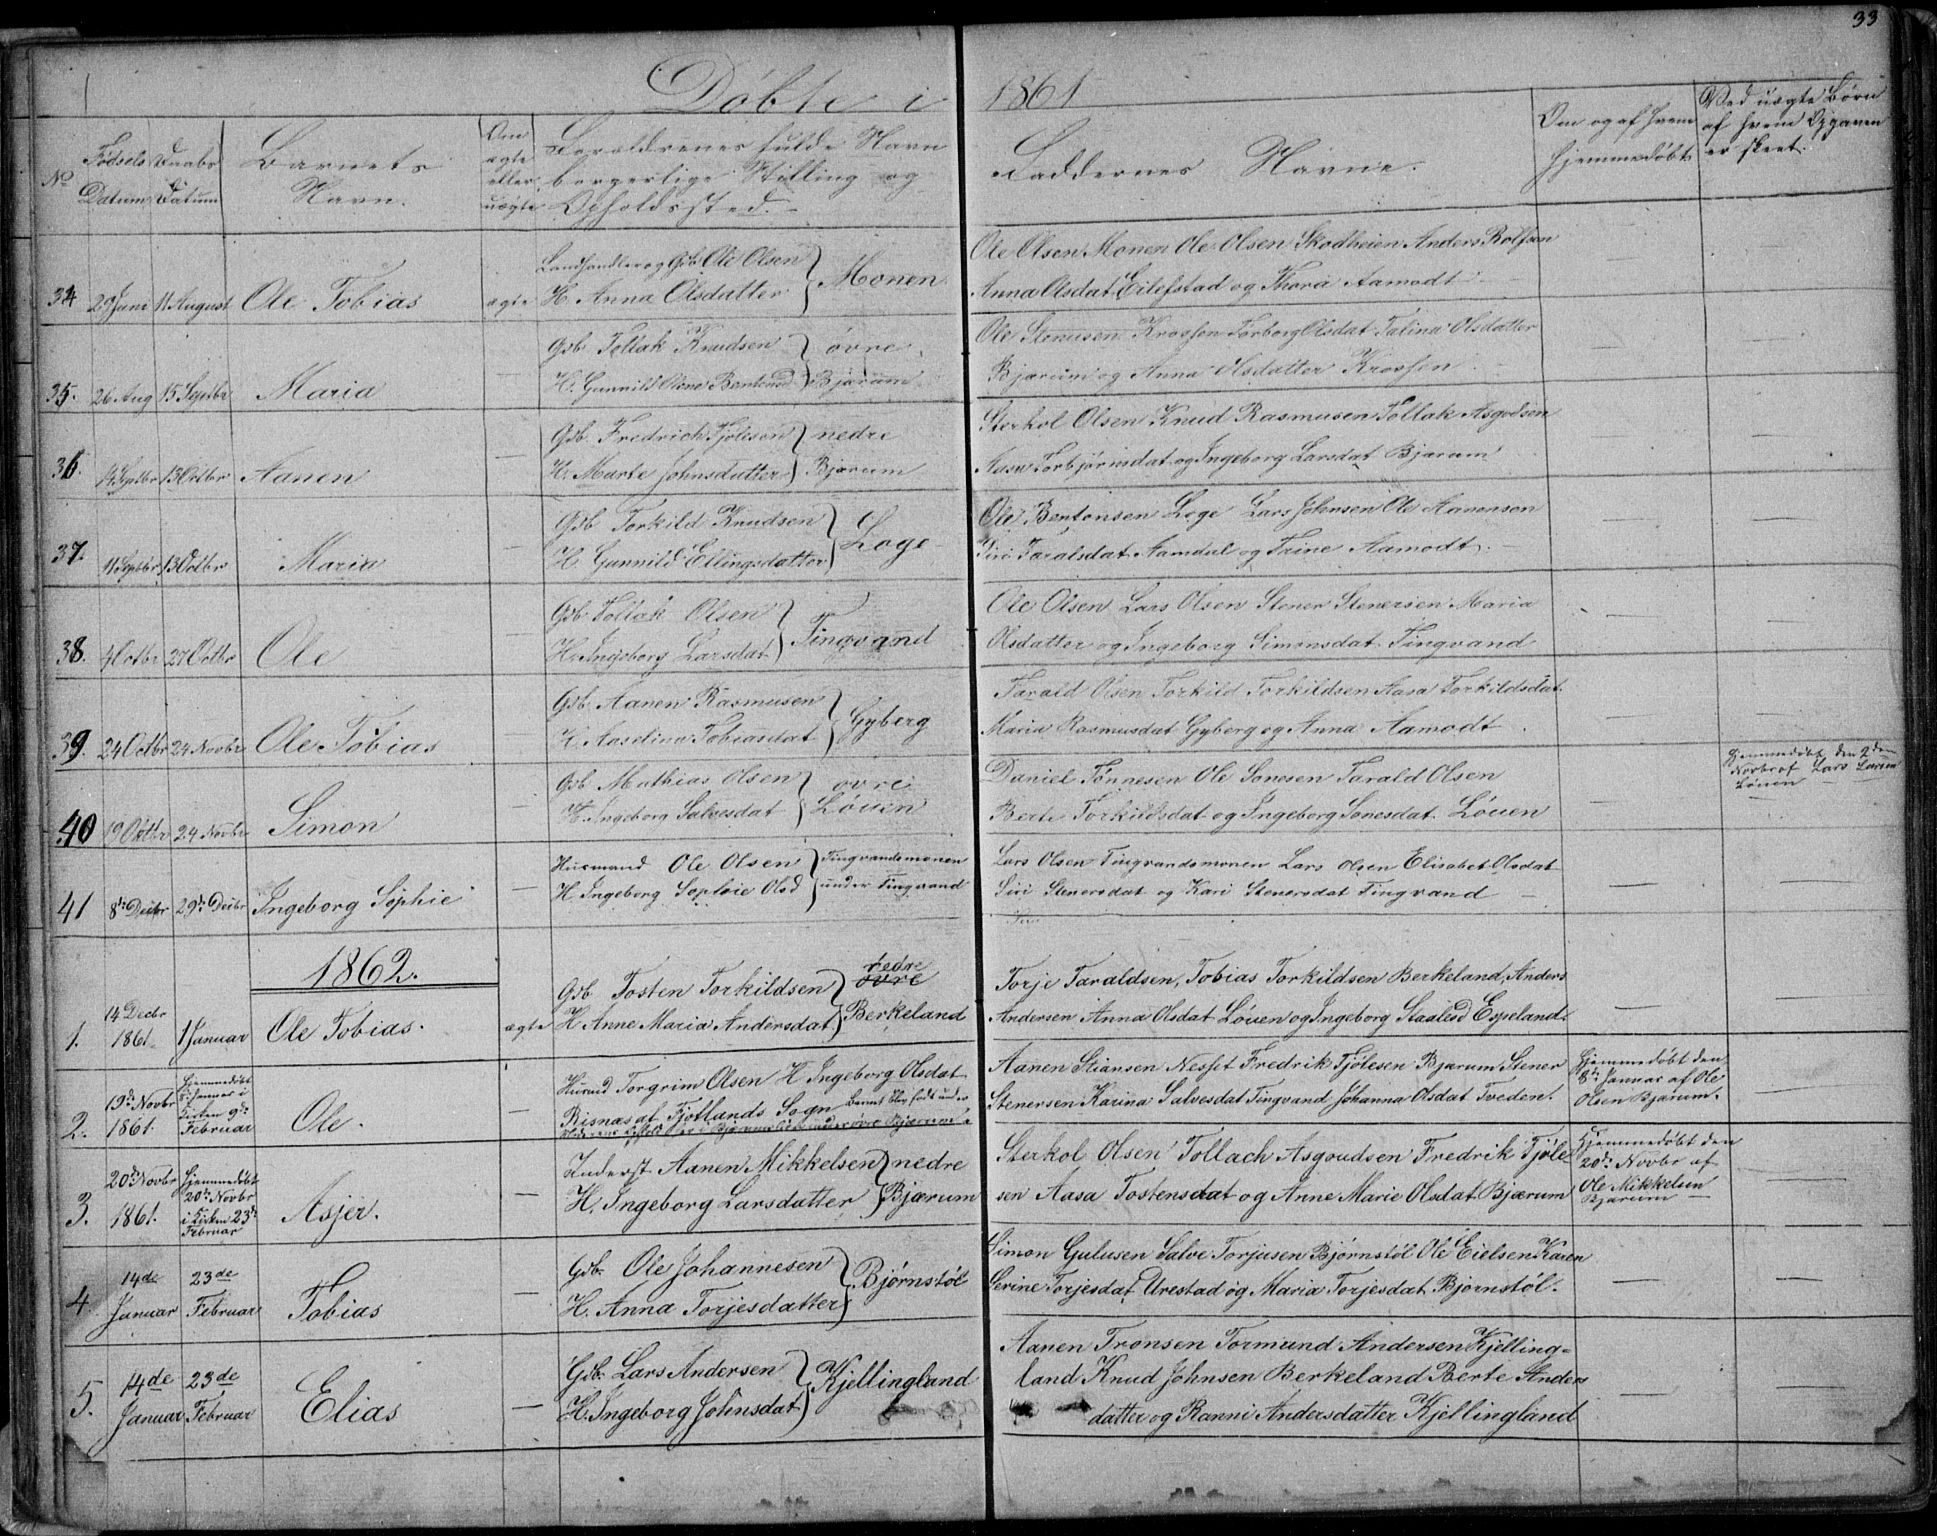 33
Döbte i 1861
No
Födsels Datum
Daabs Datum
Barnets Navn.
Om ægte eller uægte
Forældrenes fulde Navn borgerlige Stilling og Opholdssted.
Faddernes Navne.
Om og af hvem hjemmedöbt
Ved uægte Börn af hvem Opgaven er skeet.
34 29 Juni 11 August Ole Tobias ægte Landhandler og Gdb Ole Olsen
H. Anna Olsdatter } Monen
Ole Olsen Monen Ole Olsen Skodheien Anders Rolfsen
Anna Olsdat Eilefstad og Thora Aamodt
35. 26 Aug 15 Septbr Maria
Gdb Tollak Knudsen } övre
H. Gunnild Bjærum
Ole Stenusen Krossen Torborg Olsdat Talina Olsdatter
Bjærum og Anna Olsdatter Krossen
36. 14 Septbr 13 Octbr Aanen
Gdb. Fredrich Tjölesen } nedre
H. Marte Johnsdatter } Bjærum
Sterkol Olsen Knud Rasmusen Tollak Asgodsen
Aasa Torbjörnsdat og Ingeborg Larsdat Bjærum
37. 11 Septbr 13 Octbr Maria
Gdb Torkild Knudsen
H. Gunnild Ellingsdatter } Loge
Ole Bentonsen Loge Lars Johnsen Ole Aanonsen
Siri Taralsdat Aamdal og Trine Aamodt.
38. 4 Octbr 27 Octbr Ole
Gdb Tollak Olsen
H. Ingeborg Larsdat } Tingvand
Ole Olsen Lars Olsen Stener Stenersen Maria
Olsdatter og Ingeborg Simonsdat Tingvand
39. 24 Octbr 24 Novbr Ole Tobias
Gdb. Aanen Rasmusen
H. Aaselina Tobiasdat } Gyberg
Tarald Olsen Torkild Torkildsen Aasa Torkildsdat
Maria Rasmusdat Gyberg og Anna Aamodt
40 19 Octbr 24 Novbr Simon
Gdb Mathias Olsen } övre
H. Ingeborg Salvesdat } Löuen
Daniel Tönnesen Ole Sonesen Tarald Olsen
Berte Torkildsdat og Ingeborg Sonesdat Löuen
Hjemmedöbt den 2den
Novbr af Lars Larsen
Löuen
41 8de Decbr 29de Decbr Ingeborg Sophie
Husmand Ole Olsen } Tingvandsmonen
H. Ingeborg Sophie Olsd } under Tingvand
Lars Olsen Tingvandsmonen Lars Olsen Elisabet Olsdat
Siri Stenersdat og Kari Stenersdat Tingvand
1862.
1. 14 Decbr 1861. 1 Januar Ole Tobias. ægte
Gdb Tosten Torkildsen } nedre övre
H Anne Maria Andersdat } Berkeland
Torje Taraldsen, Tobias Torkildsen Berkeland, Anders
Andersen Anna Olsdat Löuen og Ingeborg Staalesd Espeland.
2. 19de Novbr 1861. Hjemmedöbt 8de Januar i Kirken 9de Februar Ole.
Husmd Torgrim Olsen H Ingeborg Olsdat
Risnas af Fjotlands Sogn Barnet blev födt under
Aanen Stiansen Nesset Fredrik Tjölesen Bjærum Stener
Stenersen Karina Salvesdat Tingvand Johanna Olsdat Tveden.
Hjemmedöbt den
8de Januar af Ole
Olsen Bjærum.
3. 20de Novbr 1861. Hjemmedöbt 20de Novbr i Kirken 23de Februar Asjer.
Inderst Aanen Mikkelsen } nedre
H. Ingeborg Larsdatter } Bjærum
Sterkol Olsen Tollach Asgoudsen Fredrik Tjöle
sen Aasa Tostensdat og Anne Marie Olsdat Bjærum
Hjemmedöbt den
20de Novbr af
Ole Mikkelsen
Bjærum
4. 14de Januar 23de Februar Tobias
Gdb. Ole Johannesen
H. Anna Torjesdatter } Björnstöl
Simon Gulusen Salve Torjusen Björnstöl Ole Eielsen Karen
Serine Torjesdat Urestad og Maria Torjesdat Björnstöl.
5. 14de Januar 23de Februar Elias
Gdb. Lars Andersen
H. Ingeborg Johnsdat } Kjellingland
Aanen Tronsen Tormund Andersen Kjelling=
land Knud Johnsen Berkeland Berte Anders
datter og Ranni Andersdatter Kjellingland